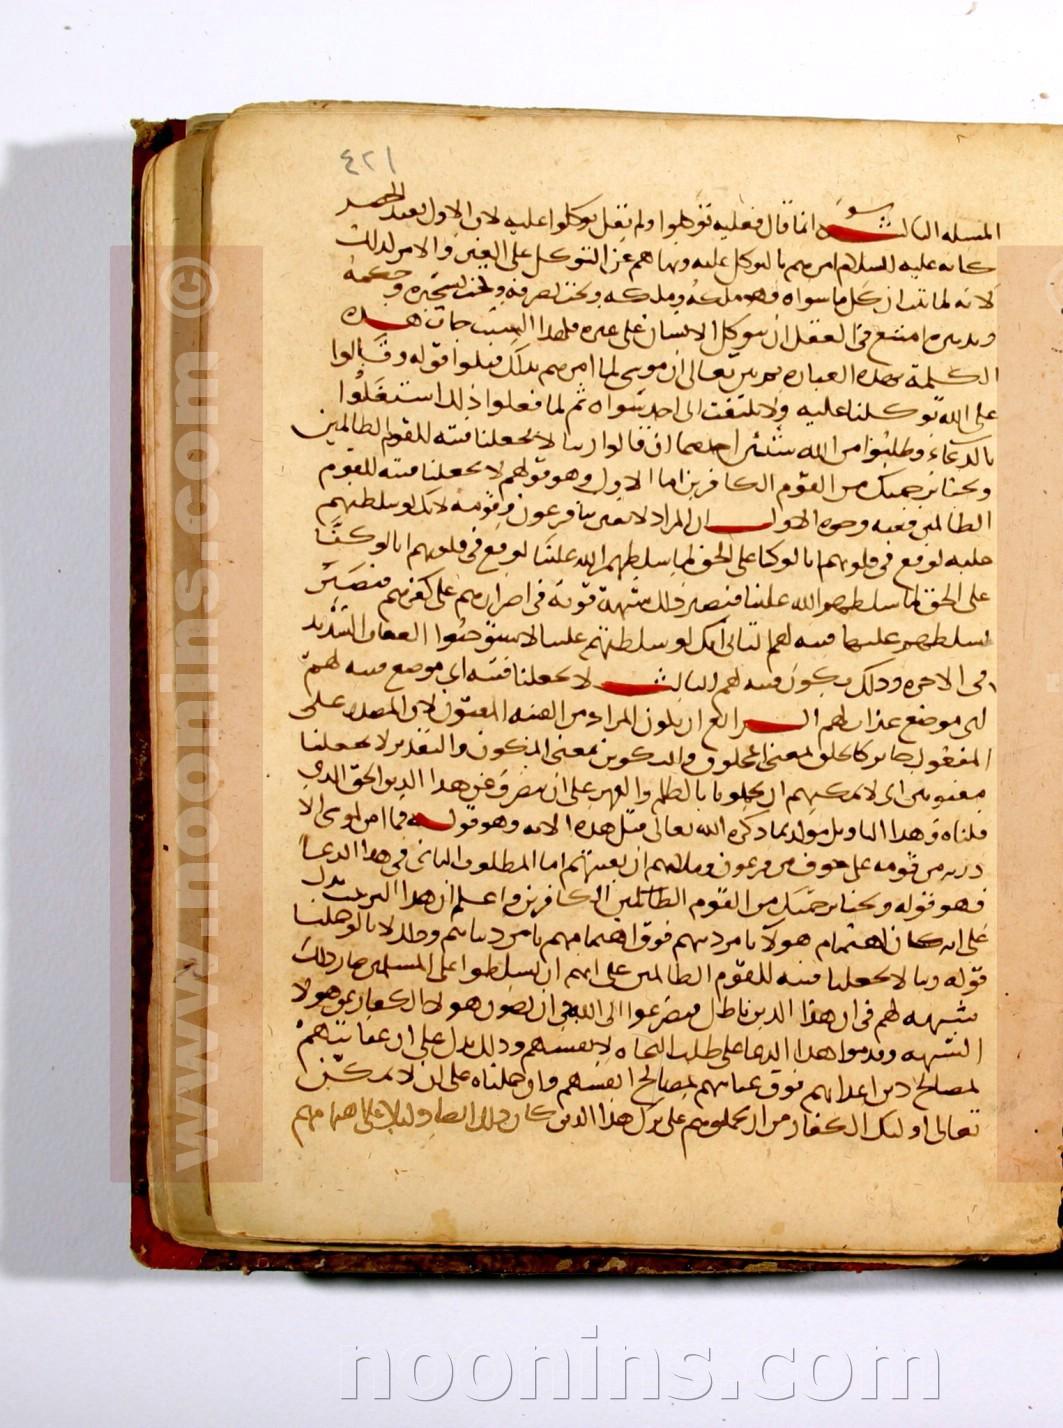 ٤٢١
المسله الثالثه انما قال فعليه توكلوا ولم يقل توكلوا عليه لان الاول يفيد الحصر
كانه عليه السلام امرهم بالتوكل عليه ونهاهم عن التوكل على الغير والامر كذلك
لانه لما ثبت ان كل ما سواه فهو ملكه وملكه وتحت تصرفه وتحت تسخيره وحكمه
وتدبيره امتنع في العقل ان يتوكل الانسان على غيره فلهذا السبب جات هذه
الكلمة بهذه العباره ثم بين تعالى ان موسى لما امرهم بذلك قبلوا قوله وقالوا
على الله توكلنا عليه ولا نلتفت الى احد سواه ثم لما فعلوا ذلك استقبلوا
بالدعاء وطلبوا من الله شيئين احدهما ان قالوا ربنا لا تجعلنا فتنه للقوم الظالمين
ونجنا برحمتك من القوم الكافرين اما الاول وهو قولهم لا تجعلنا فتنه للقوم
الظالمين ففيه وجوه الاول ان المراد لا تفتن بنا فرعون وقومه لانك لو سلطتهم
علينا لوقع في قلوبهم انا لو كنا على الحق لما سلطهم الله علينا لوقع في قلوبهم انا لو كنا
على الحق لما سلطهم الله علينا فيصير ذلك شبهة قوية في اصرارهم على كفرهم فيصير
تسلطهم علينا فتنه لهم الثاني انك لو سلطتهم علينا لاستوجبوا العقاب الشديد
في الاخره وذلك يكون فتنه لهم الثالث لا تجعلنا فتنه اي موضع فتنه لهم
اي موضع عذاب لهم الرابع ان يكون المراد من الفتنه المفتون لان المصدر على
المفعول جايز كالخلق بمعنى المخلوق والتكوين بمعنى المكون والتقدير لا تجعلنا
مفتونين اي لا تمكنهم ان يحملونا بالظلم والقهر على ان ننصرف عن هذا الدين الحق الذي
قبلناه وهذا التاويل موكد بما ذكره الله تعالى قبل هذه الايه وهو قوله فما امن لموسى الا
ذريه من قومه على خوف من فرعون وملاهم ان يفتنهم اما المطلوب الثاني في هذا الدعا
فهو قوله ونجنا برحمتك من القوم الظالمين الكافرين واعلم ان هذا الترتيب يدل
على انه كان اهتمام هولا بامر دينهم فوق اهتمامهم بامر دنياهم وذلك لانا لو حملنا
قوله ربنا لا تجعلنا فتنه للقوم الظالمين على انهم ان سلطوا على المسلمين صار ذلك
شبهه لهم في ان هذا الدين باطل فتضرعوا الى الله في ان يصون هولا الكفار عن هولا
الشبهه وقدموا هذا الدعا على طلب النجاه لانفسهم وذلك يدل على ان عنايتهم
لمصالح دين اعدايهم فوق عنايتهم لمصالح انفسهم وان حملناه على ان لا يمكن
تعالى اوليك الكفار من ان يحملوهم على ترك هذا الدين كان ذلك ايضا دليلا على اهتمامهم
www.noonins.com ©
noonins.com